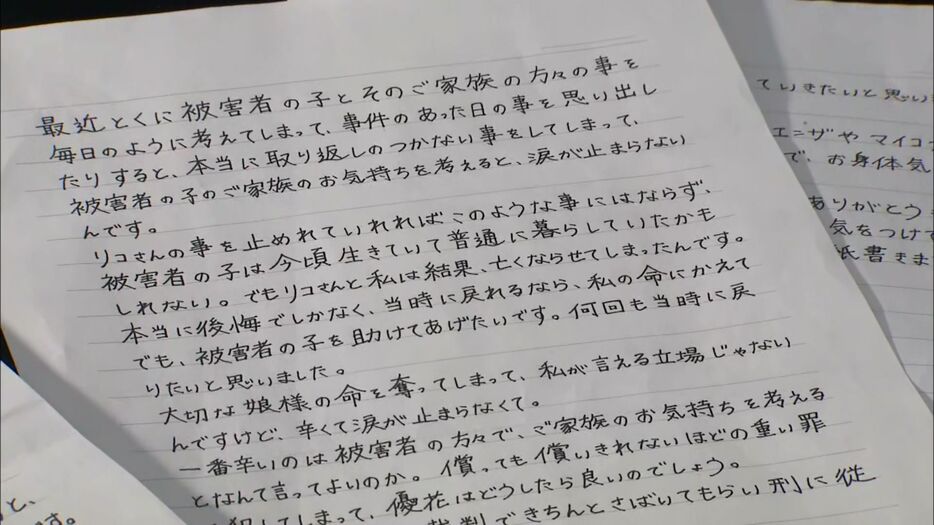 最近とくに被害者の子とそのご家族の方々の事を
毎日のように考えてしまって、事件のあった日の事を思い出し
たりすると、本当に取り返しのつかない事をしてしまって、
被害者の子のご家族のお気持ちを考えると、涙が止まらない
んです。
リコさんの事を止めれていれればこのような事にはならず、
被害者の子は今頃生きていて普通に暮らしていたかも
しれない。でもリコさんと私は結果、亡くならせてしまったんです。
本当に後悔でしかなく、当時に戻れるなら、私の命にかえて
でも、被害者の子を助けてあげたいです。何回も当時に戻
りたいと思いました。
大切な娘様の命を奪ってしまって、私が言える立場じゃない
んですけど、辛くて涙が止まらなくて。
一番辛いのは被害者の方々で、ご家族のお気持ちを考える
となんて言ってよいのか。償っても償いきれないほどの重い罪
を犯してしまって、優花はどうしたら良いのでしょう。
裁判できちんとさばいてもらい刑に従
ていきたいと思い
エニザやマイコ
で、お身体気
ありがとう
気をつけて
紙書きま
と、
です。